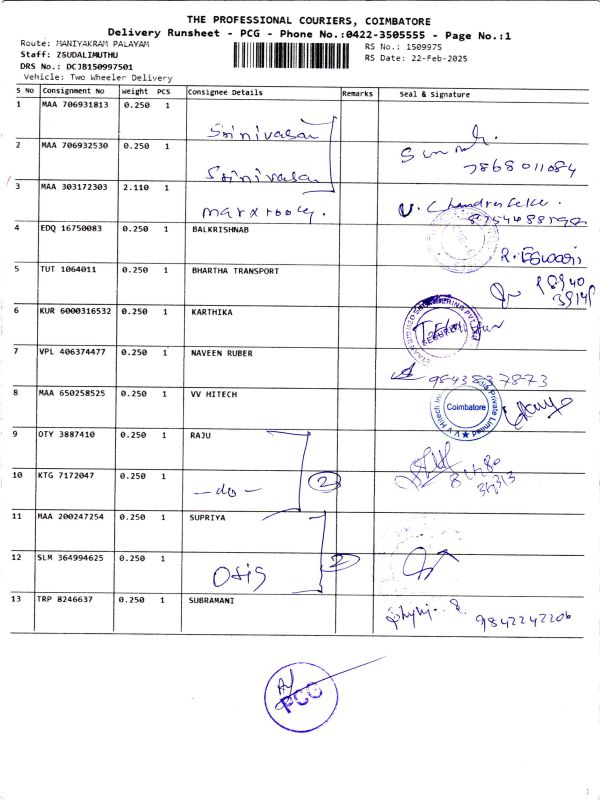 THE PROFESSIONAL COURIERS, COIMBATORE
Delivery Runsheet - PCG - Phone No.:0422-3505555 - Page No.:1
Route: MANIYAKRAM PALAYAM
Staff: ZSUDALIMUTHU
DRS No.: DCJB150997501
Vehicle: Two Wheeler Delivery
RS No.: 1509975
RS Date: 22-Feb-2025
S No Consignment No Weight PCS Consignee Details Remarks Seal & Signature
1 MAA 706931813 0.250 1 Srinivasan
2 MAA 706932530 0.250 1 Srinivasan 7868011084
3 MAA 303172303 2.110 1
4 EDQ 16750083 0.250 1 BALKRISHNAB R. Eswari
5 TUT 1064011 0.250 1 BHARTHA TRANSPORT
6 KUR 6000316532 0.250 1 KARTHIKA
7 VPL 406374477 0.250 1 NAVEEN RUBER 9843837873
8 MAA 650258525 0.250 1 VV HITECH Coimbatore
9 OTY 3887410 0.250 1 RAJU
10 KTG 7172047 0.250 1 -do- 2
11 MAA 200247254 0.250 1 SUPRIYA
12 SLM 364994625 0.250 1 Otis 2
13 TRP 8246637 0.250 1 SUBRAMANI 9842242206
PCG